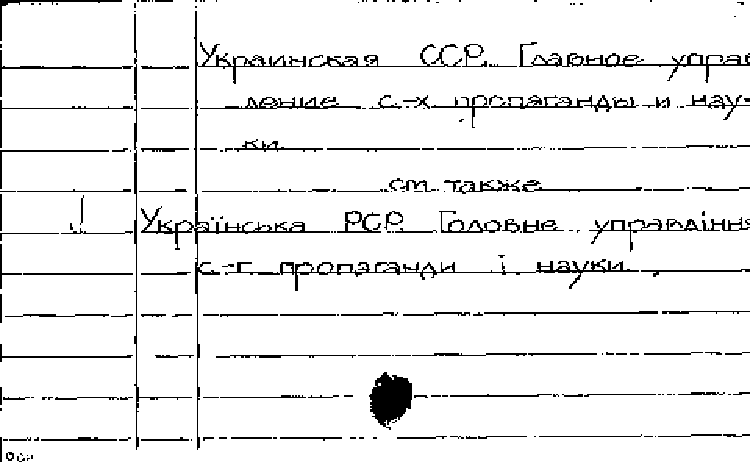 Украинская ССР. Главное управ
ление с.-х. пропаганды и нау-
ки
см. также
Українська РСР. Головне управління
с.-г. пропаганди і науки.